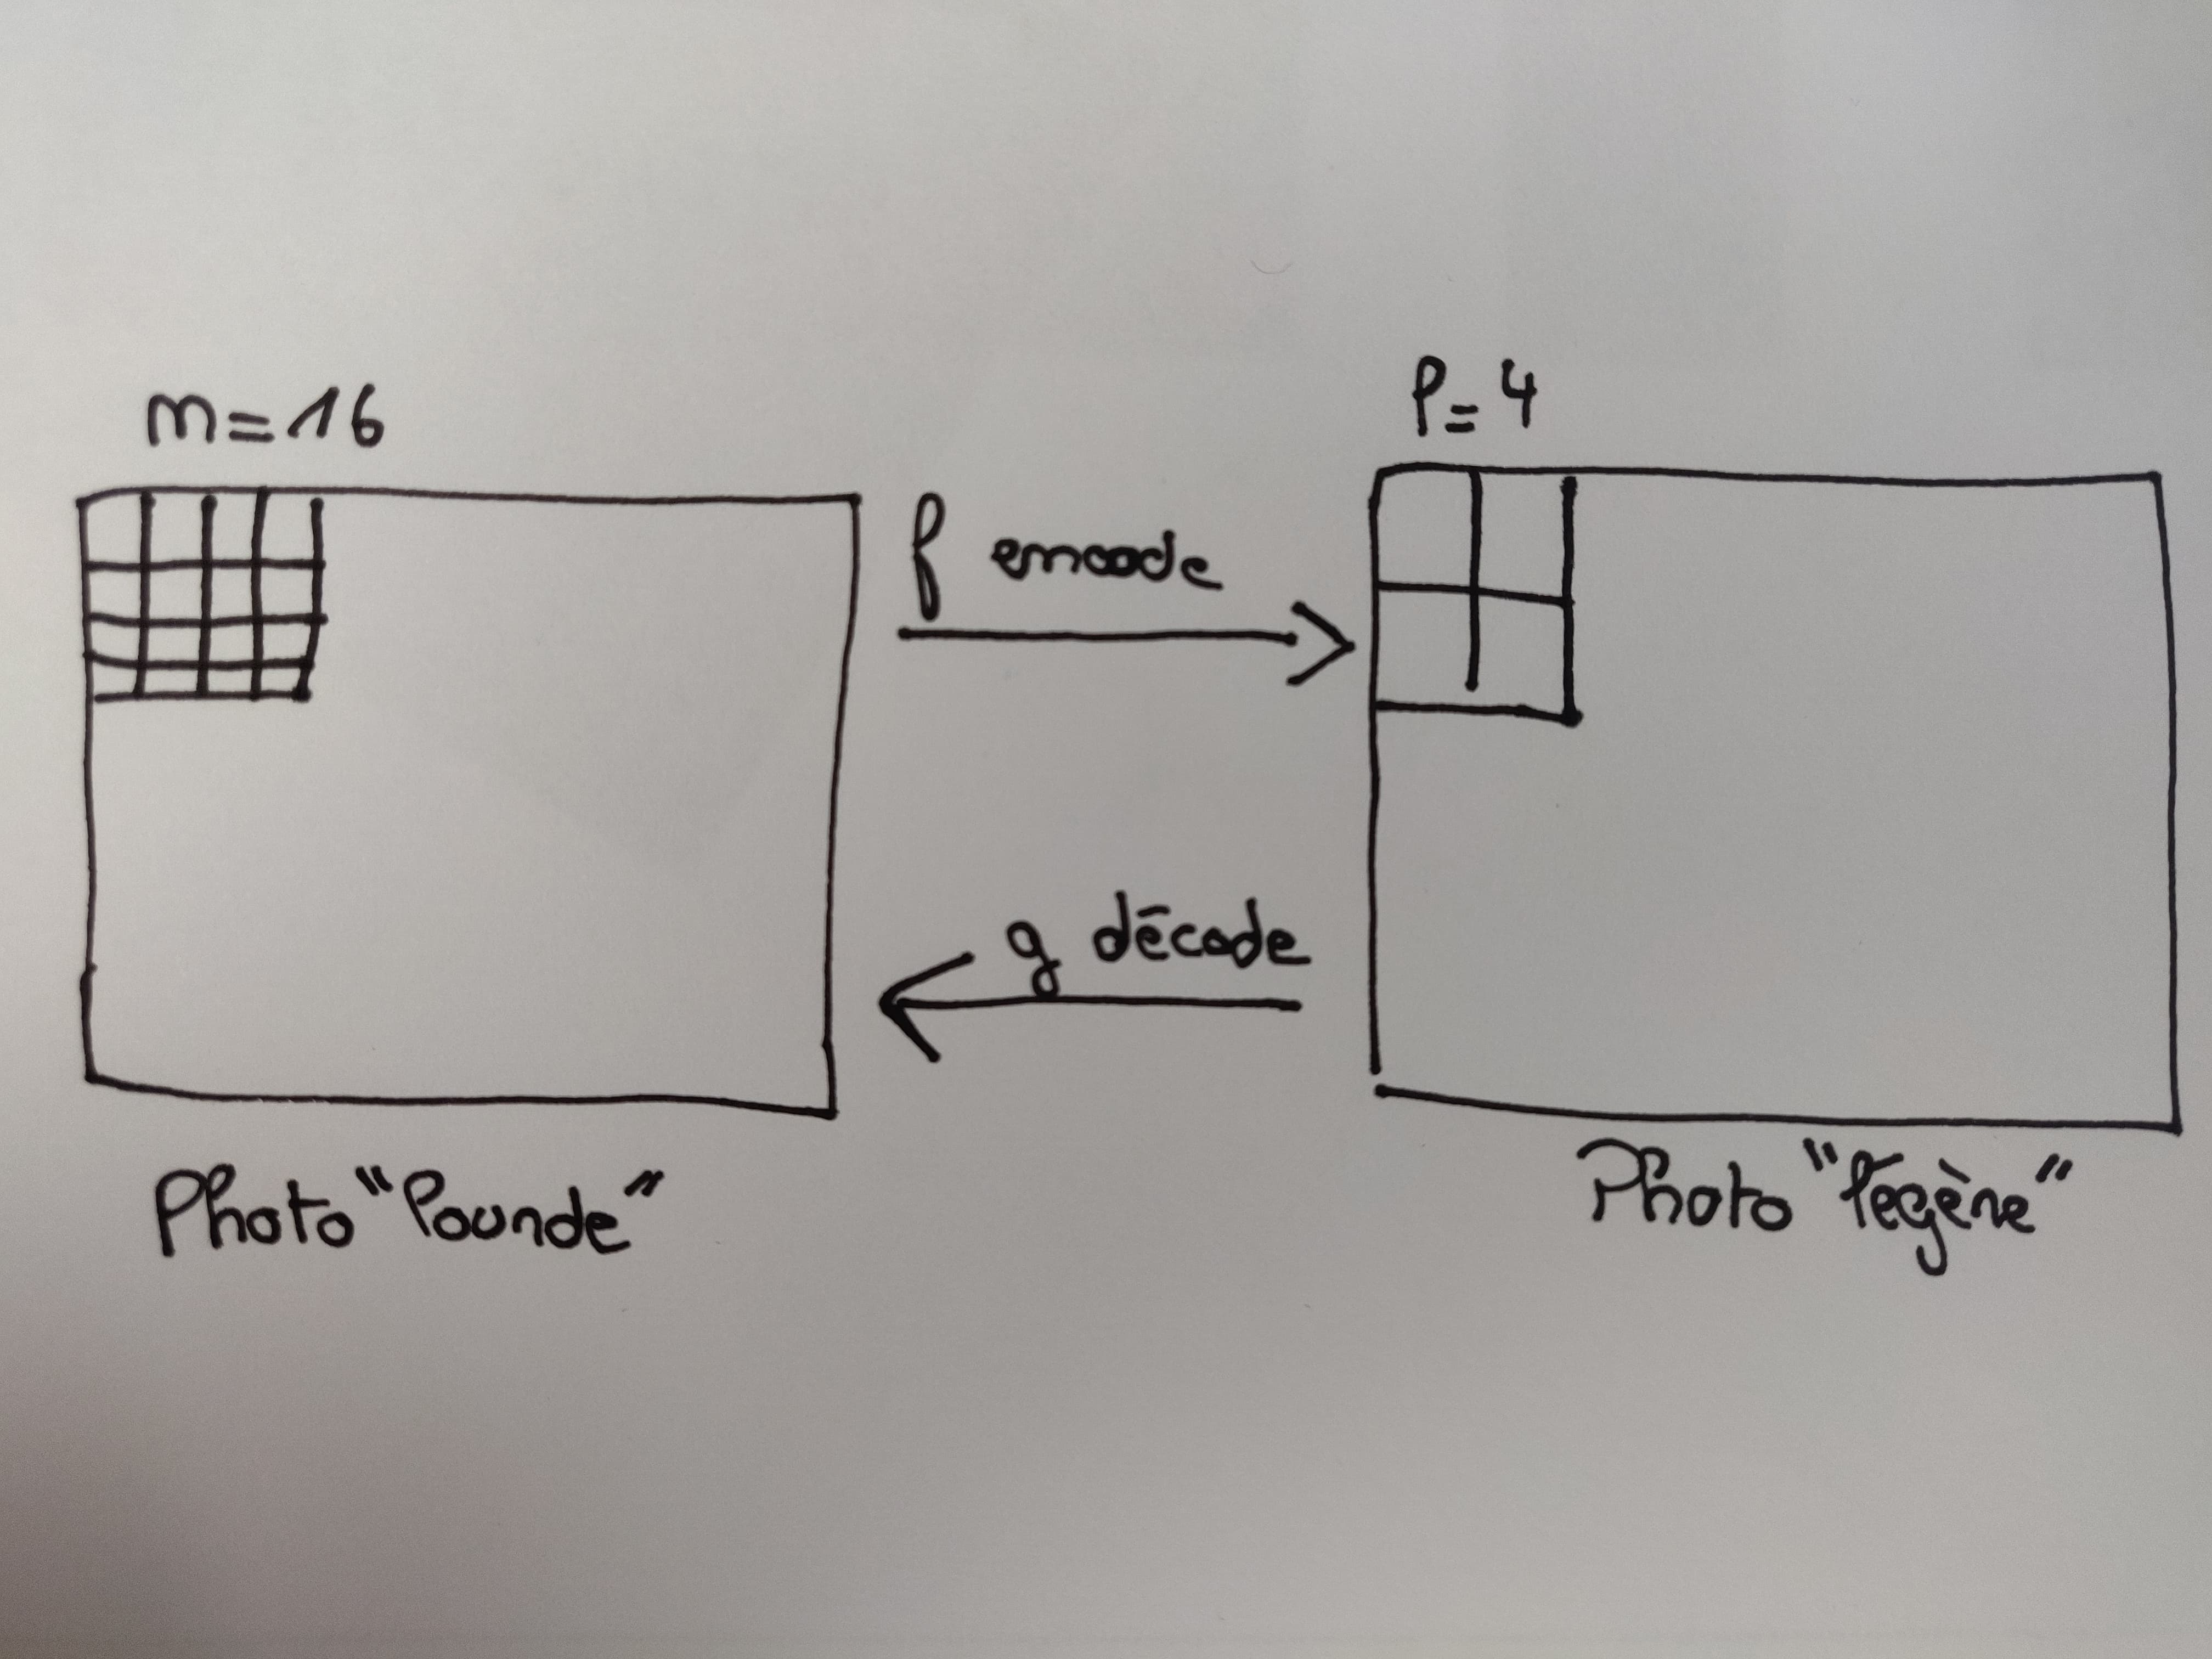 m = 16
p = 4
f encode
g décode
Photo "lourde"
Photo "légère"